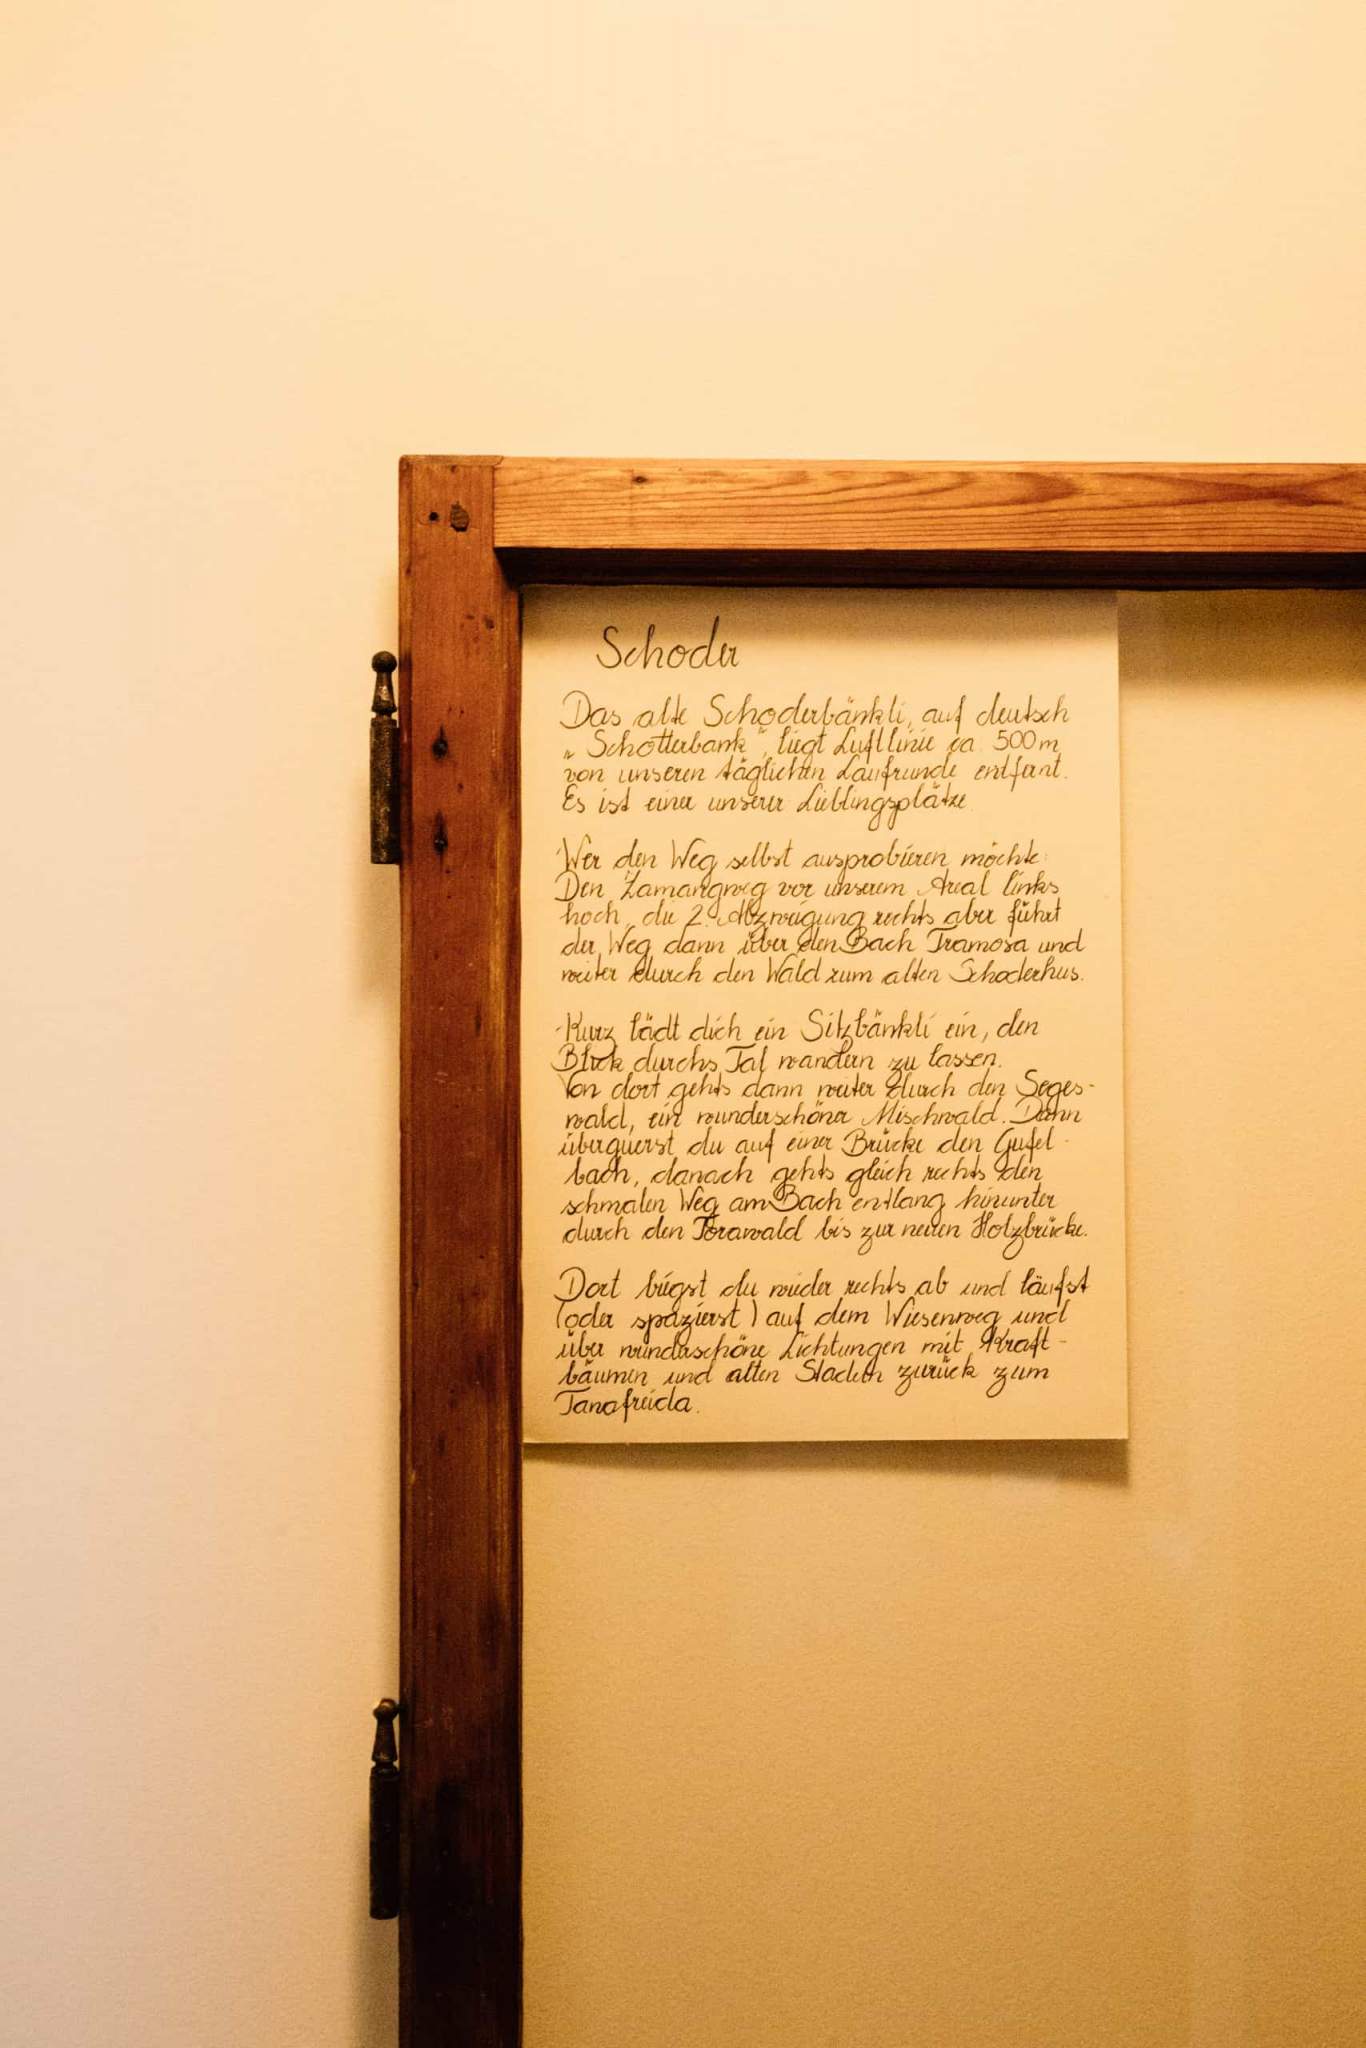 Schoder
Das alte Schoderbänkli, auf deutsch
„Schotterbank", liegt Luftlinie ca. 500m
von unseren täglichen Laufrunde entfernt.
Es ist einer unserer Lieblingsplätze.
Wer den Weg selbst ausprobieren möchte:
Den Zamangweg vor unserem Areal links
hoch, die 2. Abzweigung rechts aber führt
der Weg dann über den Bach Tramosa und
weiter durch den Wald zum alten Schoderhus.
Kurz lädt dich ein Sitzbänkli ein, den
Blick durchs Tal wandern zu lassen.
Von dort gehts dann weiter durch den Seges-
wald, ein wunderschöner Mischwald. Dann
überquerst du auf einer Brücke den Gufel-
bach, danach gehts gleich rechts den
schmalen Weg am Bach entlang hinunter
durch den Torawald bis zur neuen Holzbrücke.
Dort biegst du wieder rechts ab und läufst
(oder spazierst) auf dem Wiesenweg und
über wunderschöne Lichtungen mit Kraft-
bäumen und alten Stadeln zurück zum
Tanafreida.